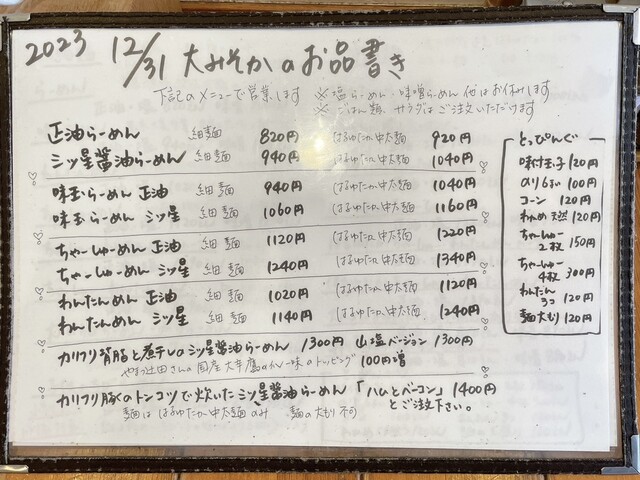 2023 12/31 大みそかのお品書き
下記のメニューで営業します
※塩らーめん・味噌らーめん 他はお休みします
※ごはん類、サラダはご注文いただけます
正油らーめん 細麺 820円 はるゆたか中太麺 920円
三ツ星醤油らーめん 細麺 940円 はるゆたか中太麺 1040円
味玉らーめん 正油 細麺 940円 はるゆたか中太麺 1040円
味玉らーめん 三ツ星 細麺 1060円 はるゆたか中太麺 1160円
ちゃーしゅーめん 正油 細麺 1120円 はるゆたか中太麺 1220円
ちゃーしゅーめん 三ツ星 細麺 1240円 はるゆたか中太麺 1340円
わんたんめん 正油 細麺 1020円 はるゆたか中太麺 1120円
わんたんめん 三ツ星 細麺 1140円 はるゆたか中太麺 1240円
カリフリ背脂と煮干しの三ツ星醤油らーめん 1300円 山塩バージョン 1300円
やまつ辻田さんの国産大辛鷹の爪一味のトッピング 100円増
カリフリ豚のトンコツで炊いた三ツ星醤油らーめん 「ハムとベーコン」 1400円
とご注文下さい。
麺ははるゆたか中太麺のみ 麺の大もり不可
とっぴんぐ
味付玉子 120円
のり6まい 100円
コーン 120円
わかめ 天然 120円
ちゃーしゅー
2枚 150円
ちゃーしゅー
4枚 300円
わんたん
3コ 120円
麺大もり 120円